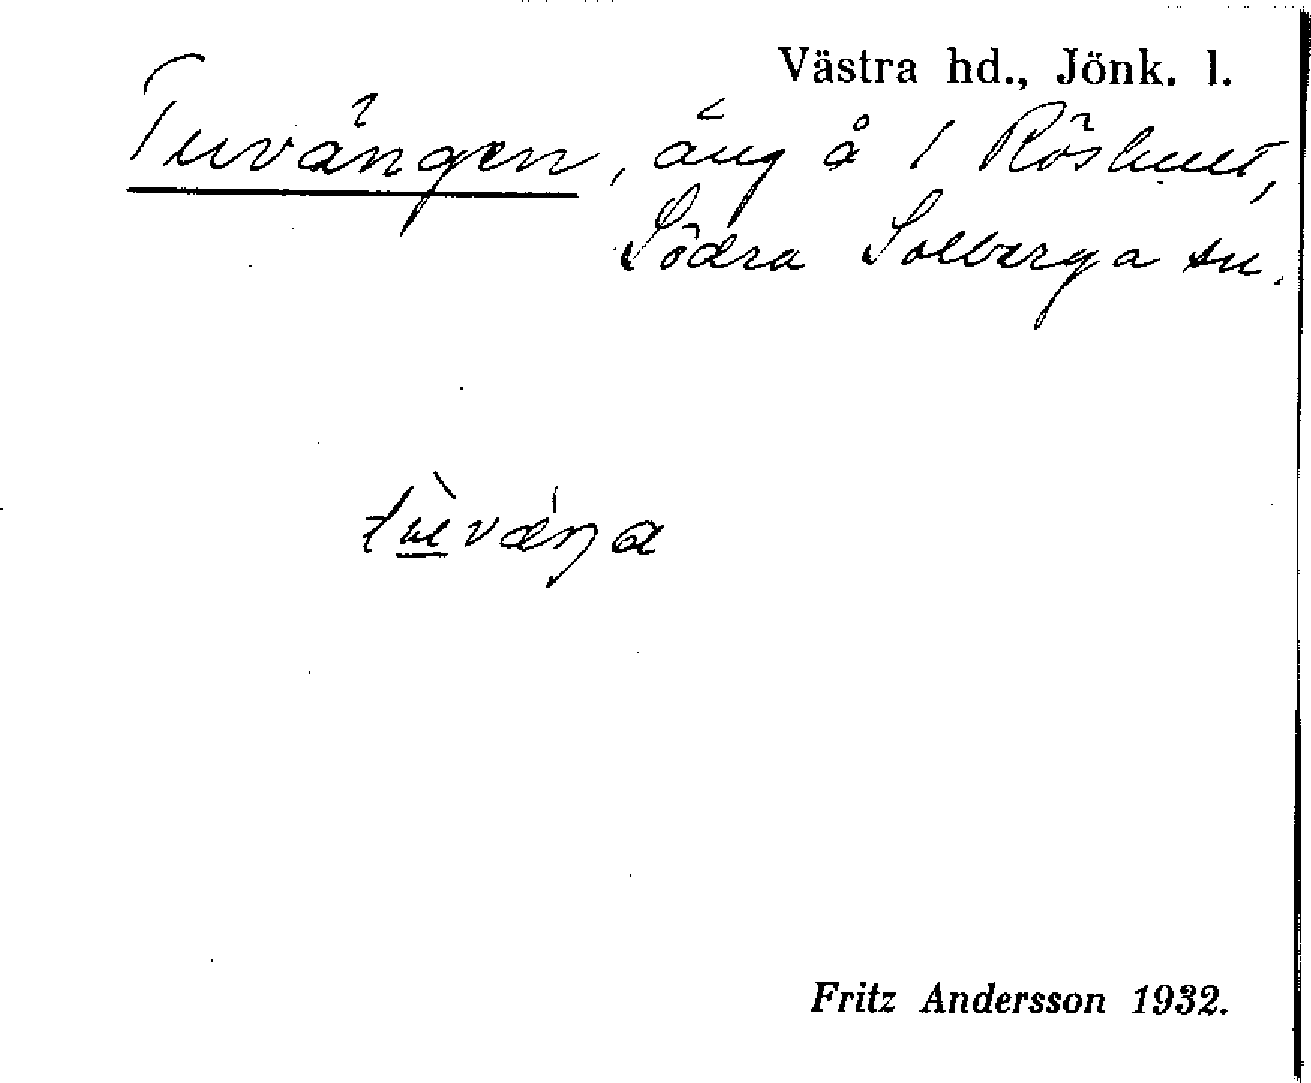 Västra hd., Jönk. l.
Tuvängen, äng å 1 Röshult,
Södra Solberga sn.
tùvæ̀ŋa
Fritz Andersson 1932.